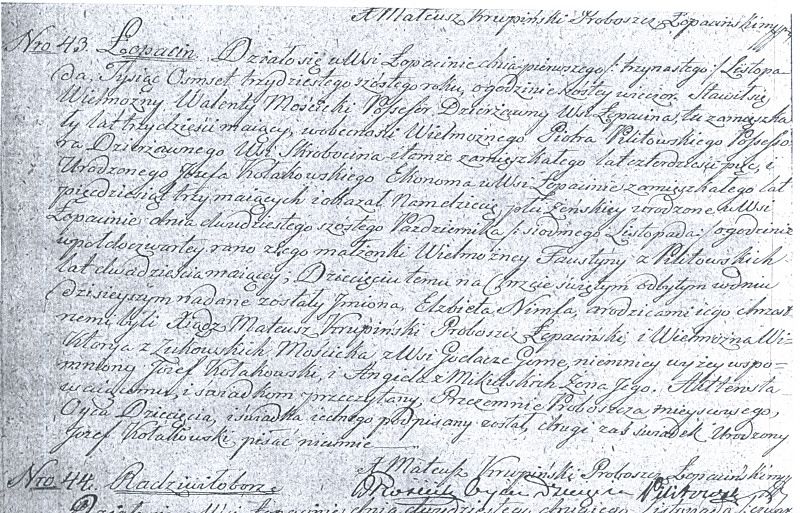 X Mateusz Krupiński Proboszcz Łopaciński mp
Nro 43. Łopacin. Działo się w Wsi Łopacinie dnia pierwszego /: trzynastego :/ Listopa-
da, Tysiąc Osmset trzydziestego szóstego roku, o godzinie szóstey wieczor. Stawił się
Wielmożny Walenty Mościcki Possessor Dzierżawny Wsi Łopacina, tu zamieszka
ły lat trzydzieści maiący, w obecności Wielmożnego Piotra Pilitowskiego Possesso-
ra Dzierżawnego Wsi Skrobocina i temże zamieszkałego lat czterdzieści pięć, i
Urodzonego Józefa Kołakowskiego Ekonoma w Wsi Łopacinie zamieszkałego lat
pięćdziesiąt trzy maiących i okazał Nam dziecię płci żeńskiey urodzone w Wsi
Łopacinie dnia dwudziestego szóstego Października /: siodmego Listopada :/ o godzinie
wpół do czwartey rano z iego małżonki Wielmożney Faustyny z Pilitowskich
lat dwadzieścia maiącey; Dziecięciu temu na Chrzcie świętym odbytym w dniu
dzisieyszym nadane zostały Jmiona, Elżbieta Nimfa, a rodzicami iego chrzest-
nemi byli Xiądz Mateusz Krupiński Proboszcz Łopaciński, i Wielmożna Wi-
ktorya z Żukowskich Mościcka z Wsi Goclacz Gome, niemniey wyżey wspo-
mniony Józef Kołakowski, i Angiela z Mikulskich Żona Jego. Akt ten sta
wiaiącemu, i świadkom przeczytany, Przezemnie Proboszcza mieyscowego,
Oyca Dziecięcia, i świadka iednego podpisany został, drugi zaś świadek Urodzony
Józef Kołakowski, pisać nieumie
X Mateusz Krupiński Proboszcz Łopaciński mp
Mościcki Oyciec Dziecięcia Pilitowski
Nro 44. Radziwiłoborze